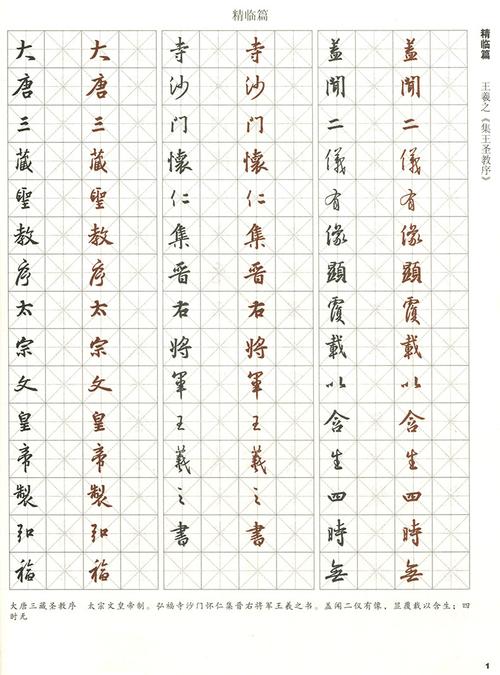 精临篇
大唐三藏聖教序太宗文皇帝製弘福
大唐三藏聖教序太宗文皇帝製弘福
寺沙门懷仁集晋右将軍王羲之書
寺沙门懷仁集晋右将軍王羲之書
盖聞二儀有像顯覆載以含生四時無
盖聞二儀有像顯覆載以含生四時無
精临篇
王羲之《集王圣教序》
大唐三藏圣教序 太宗文皇帝制。弘福寺沙门怀仁集晋右将军王羲之书。盖闻二仪有像，显覆载以含生；四
时无
1